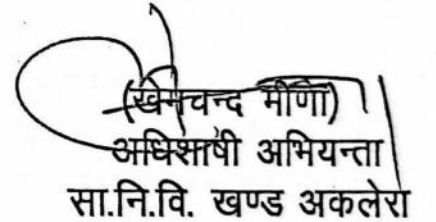 (खेमचन्द मीणा)
अधिशाषी अभियन्ता
सा.नि.वि. खण्ड अकलेरा